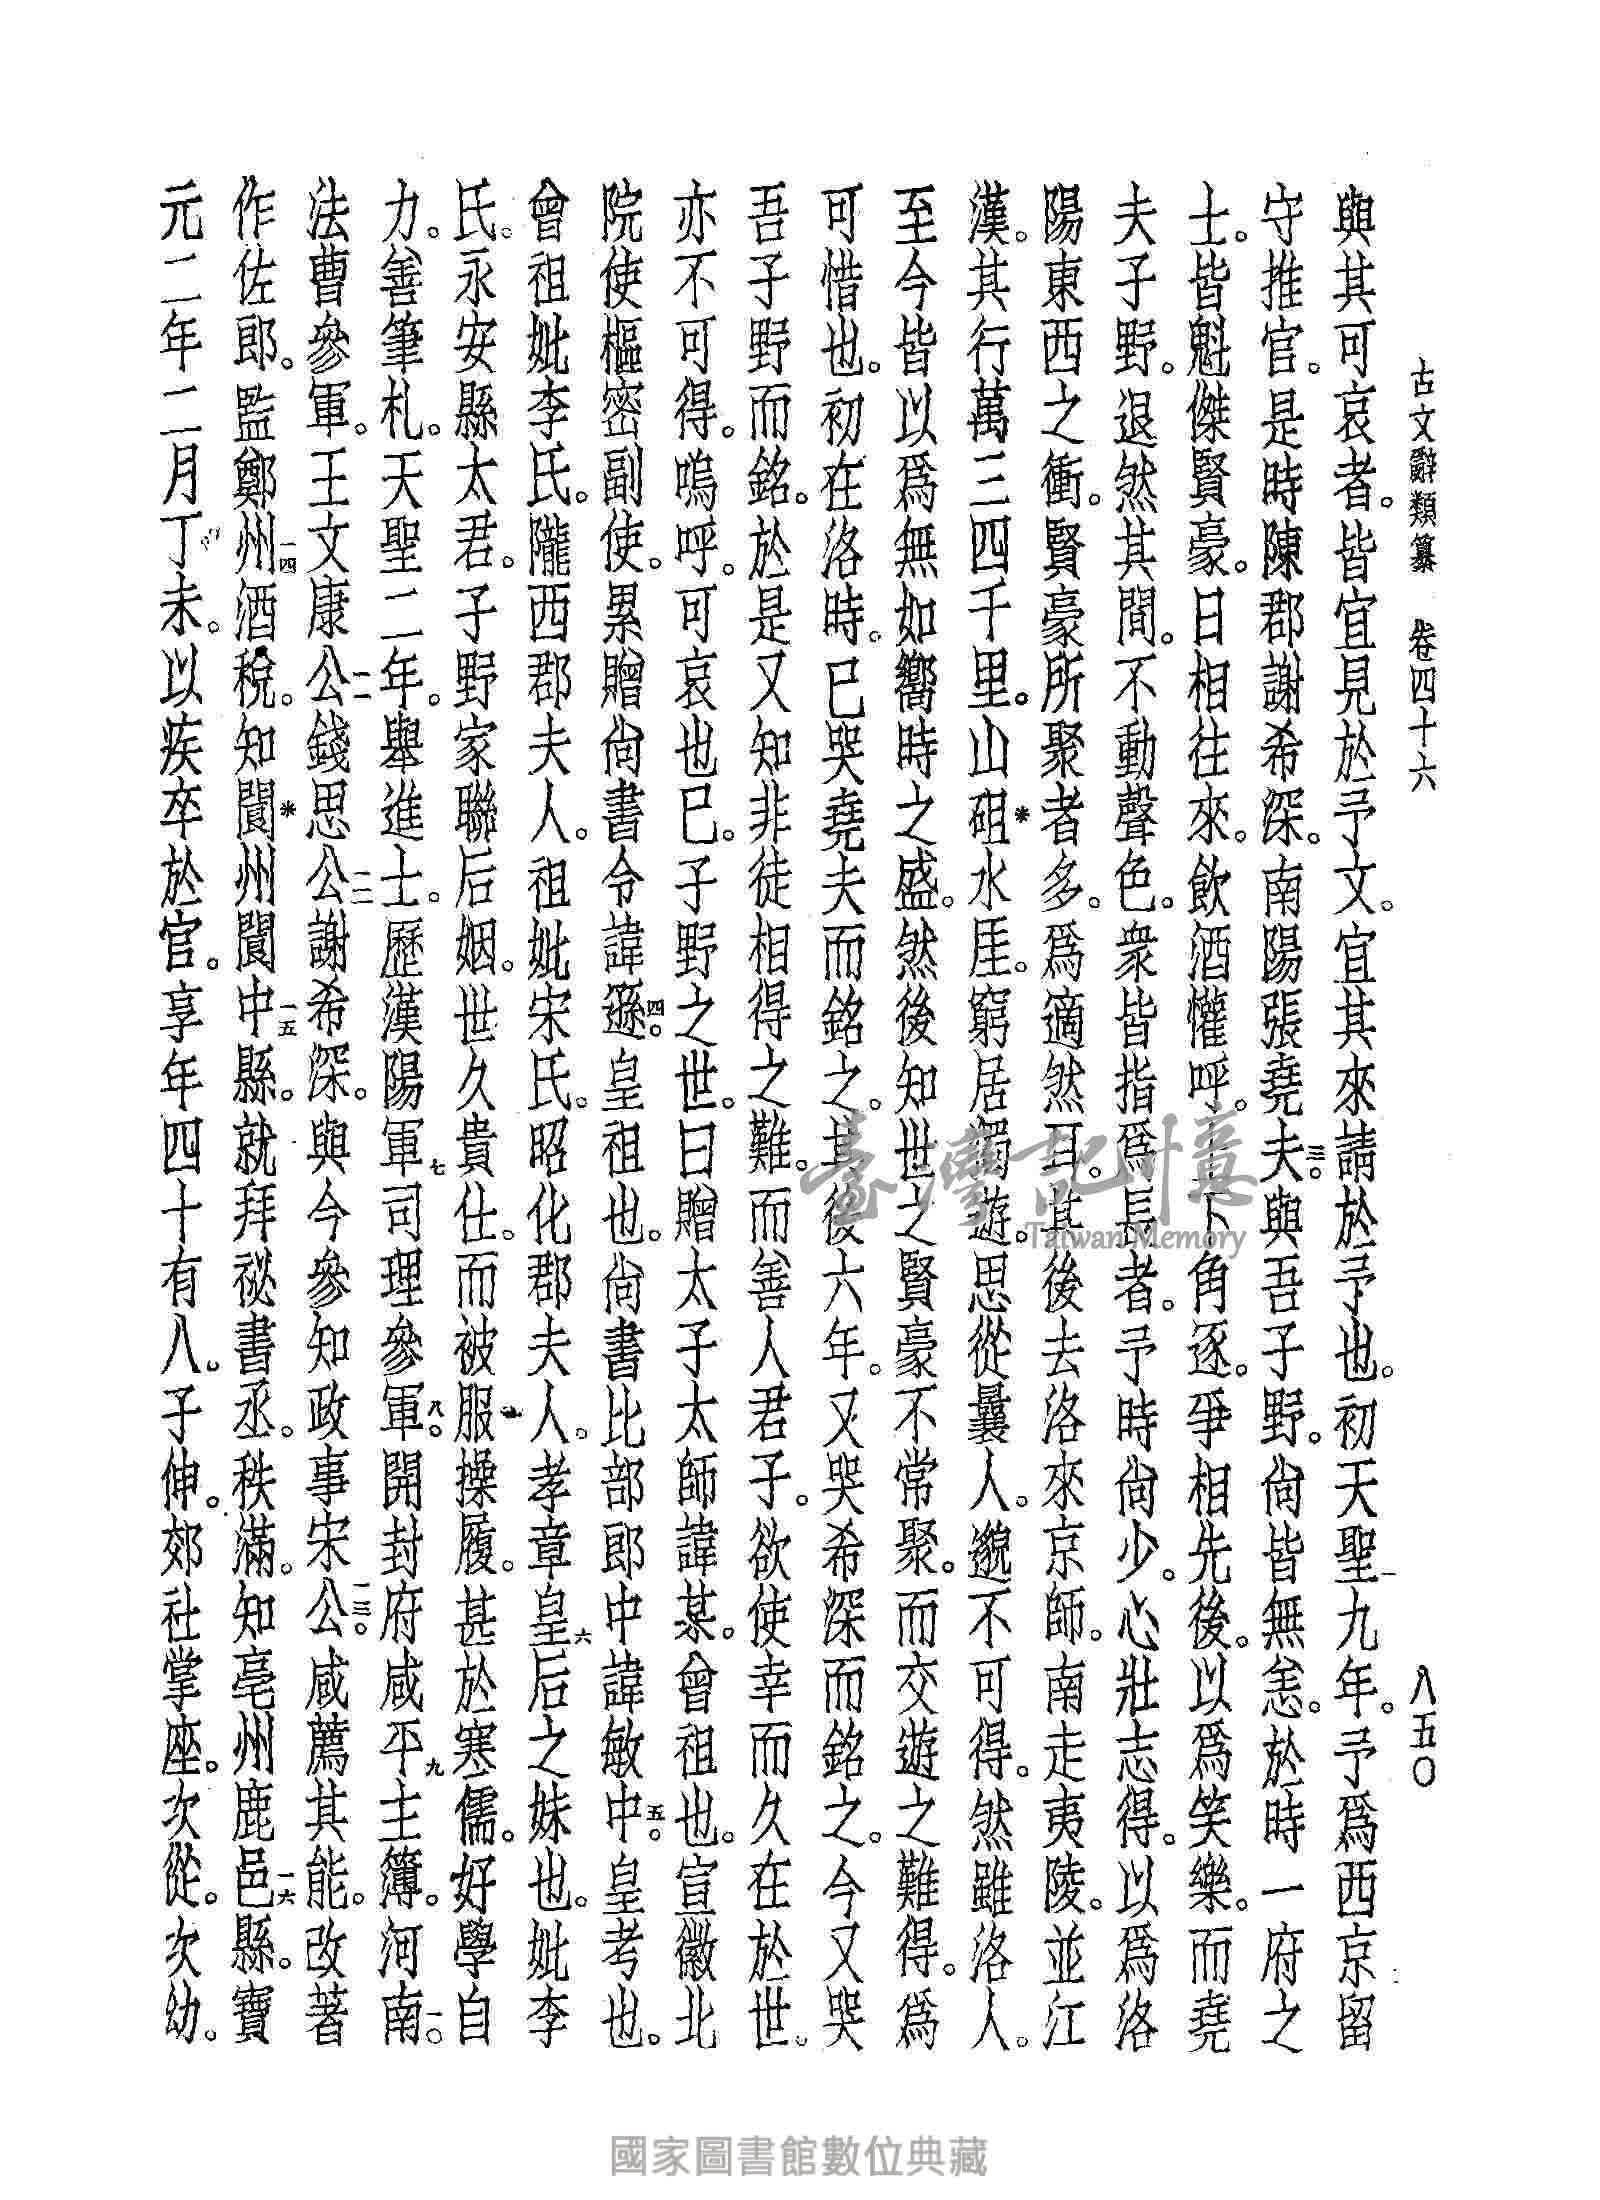 古文辭類纂　卷四十六　八五〇
與其可哀者。皆宜見於予文。宜其來請於予也。初天聖一九年。予爲西京留
守推官。是時陳郡謝希深。南陽張堯夫三。與吾子野。尙皆無恙。於時一府之
士。皆魁傑賢豪。日相往來。飲酒懽呼。上下角逐。爭相先後。以爲笑樂。而堯
夫子野。退然其間。不動聲色。衆皆指爲長者。予時尙少。心壯志得。以爲洛
陽東西之衝。賢豪所聚者多。爲適然耳。其後去洛來京師。南走夷陵。並江
漢。其行萬三四千里。山砠※水厓。窮居獨遊。思從曩人。邈不可得。然雖洛人。
至今皆以爲無如嚮時之盛。然後知世之賢豪不常聚。而交遊之難得。爲
可惜也。初在洛時。已哭堯夫而銘之。其後六年。又哭希深而銘之。今又哭
吾子野而銘。於是又知非徒相得之難。而善人君子。欲使幸而久在於世。
亦不可得。嗚呼。可哀也已。子野之世。曰贈太子太師諱某。曾祖也。宣徽北
院使樞密副使。累贈尙書令諱遜四。皇祖也。尙書比部郎中諱敏中五。皇考也。
曾祖妣李氏。隴西郡夫人。祖妣宋氏。昭化郡夫人。孝章皇六后之妹也。妣李
氏。永安縣太君。子野家聯后姻。世久貴仕。而被服操履。甚於寒儒。好學自
力。善筆札。天聖二年。舉進士。歷漢陽軍七司理參軍八。開封府咸平九主簿。河南一〇
法曹參軍。王文康公一一錢思公一二謝希深。與今參知政事宋公一三。咸薦其能。改著
作佐郎。監鄭州一四酒稅。知閬※州閬中一五縣。就拜祕書丞。秩滿。知亳州鹿邑一六縣。寶
元二年二月丁未。以疾卒於官。享年四十有八。子伸。郊社掌座。次從。次幼。
臺灣記憶
Taiwan Memory
國家圖書館數位典藏